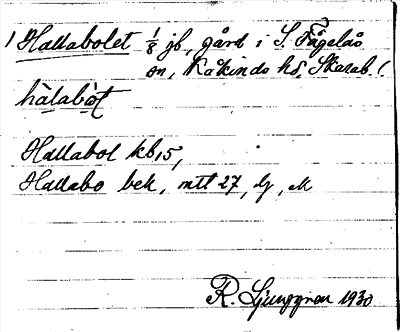 1 Hallabolet 1/8 jb, gård i S. Fågelås
sn, Kåkinds hd, Skarab. l
hàlabòt
Hallabol kb 15,
Hallabo bek, mtl 27, G, M
R. Ljunggren 1930